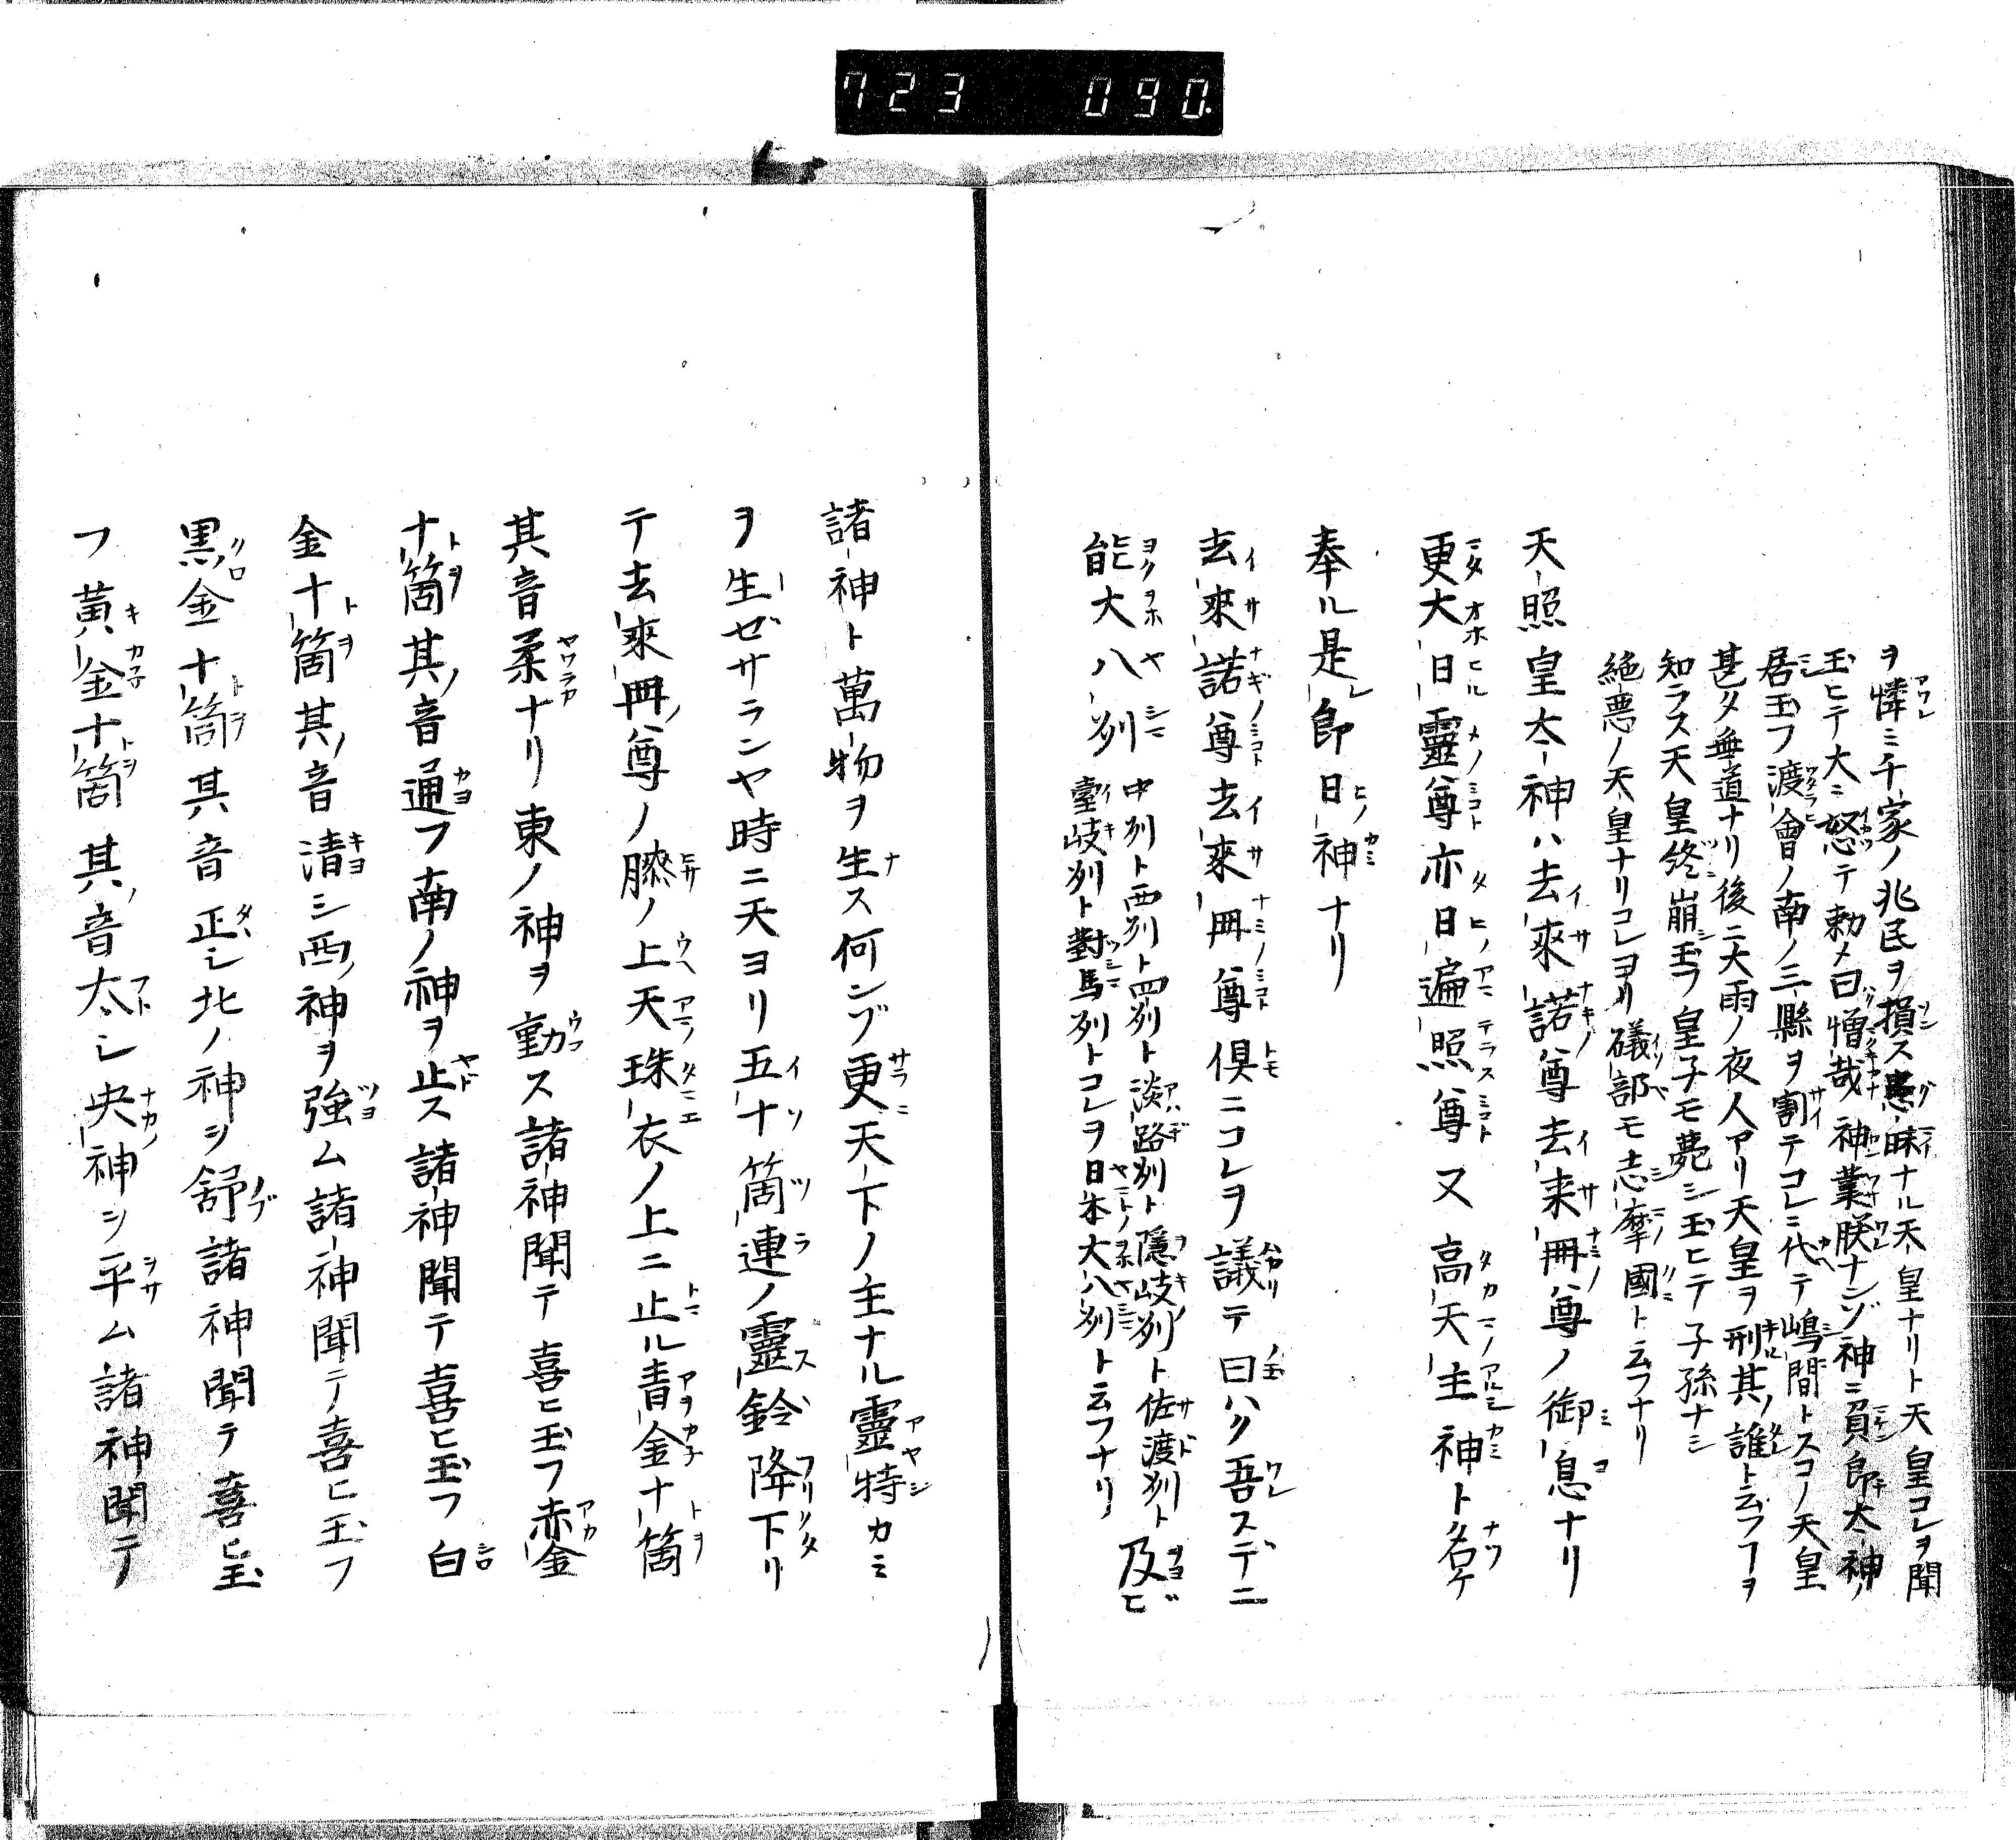 723 090
ヲ憐ミ千家ノ兆民ヲ損ス愚昧ナル天皇ナリト天皇コレヲ聞
玉ヒテ大ニ怒テ勅メ曰憎哉神業朕ナンゾ神ニ負郎太神ノ
居玉フ渡會ノ南ノ三縣ヲ割テコレニ代テ嶋間トスコノ天皇
甚タ無道ナリ後ニ大雨ノ夜人アリ天皇ヲ刑其ノ誰ト云フヿヲ
知ラス天皇終崩玉フ皇子モ薨シ玉ヒテ子孫ナシ
絶悪ノ天皇ナリコレヨリ礒部モ志摩國ト云フナリ
天照皇太神ハ去來諾尊去来冊尊ノ御息ナリ
更大日靈尊亦日遍照尊又高天主神ト名ケ
奉ル是郎日神ナリ
去來諾尊去來冊尊倶ニコレヲ議テ曰ハク吾ステニ
能大八州 中州ト西州ト四州ト淡路州ト隱岐州ト佐渡州ト及ヒ
臺岐州ト對馬州トコレヲ日本大八州ト云フナリ
諸神ト萬物ヲ生ス何ンゾ更天下ノ主ナル靈特カミ
ヲ生ゼサランヤ時ニ天ヨリ五十箇連ノ靈鈴降下リ
テ去來冊尊ノ膝ノ上天珠衣ノ上ニ止ル青金十箇
其音柔ナリ東ノ神ヲ動ス諸神聞テ喜ヒ玉フ赤金
十箇其ノ音通フ南ノ神ヲ止ス諸神聞テ喜ヒ玉フ白
金十箇其ノ音清シ西ノ神ヲ強ム諸神聞テ喜ヒ玉フ
黒金十箇其音正シ北ノ神シ舒諸神聞テ喜ヒ玉
フ黄金十箇其ノ音太シ央神シ平ム諸神聞テ